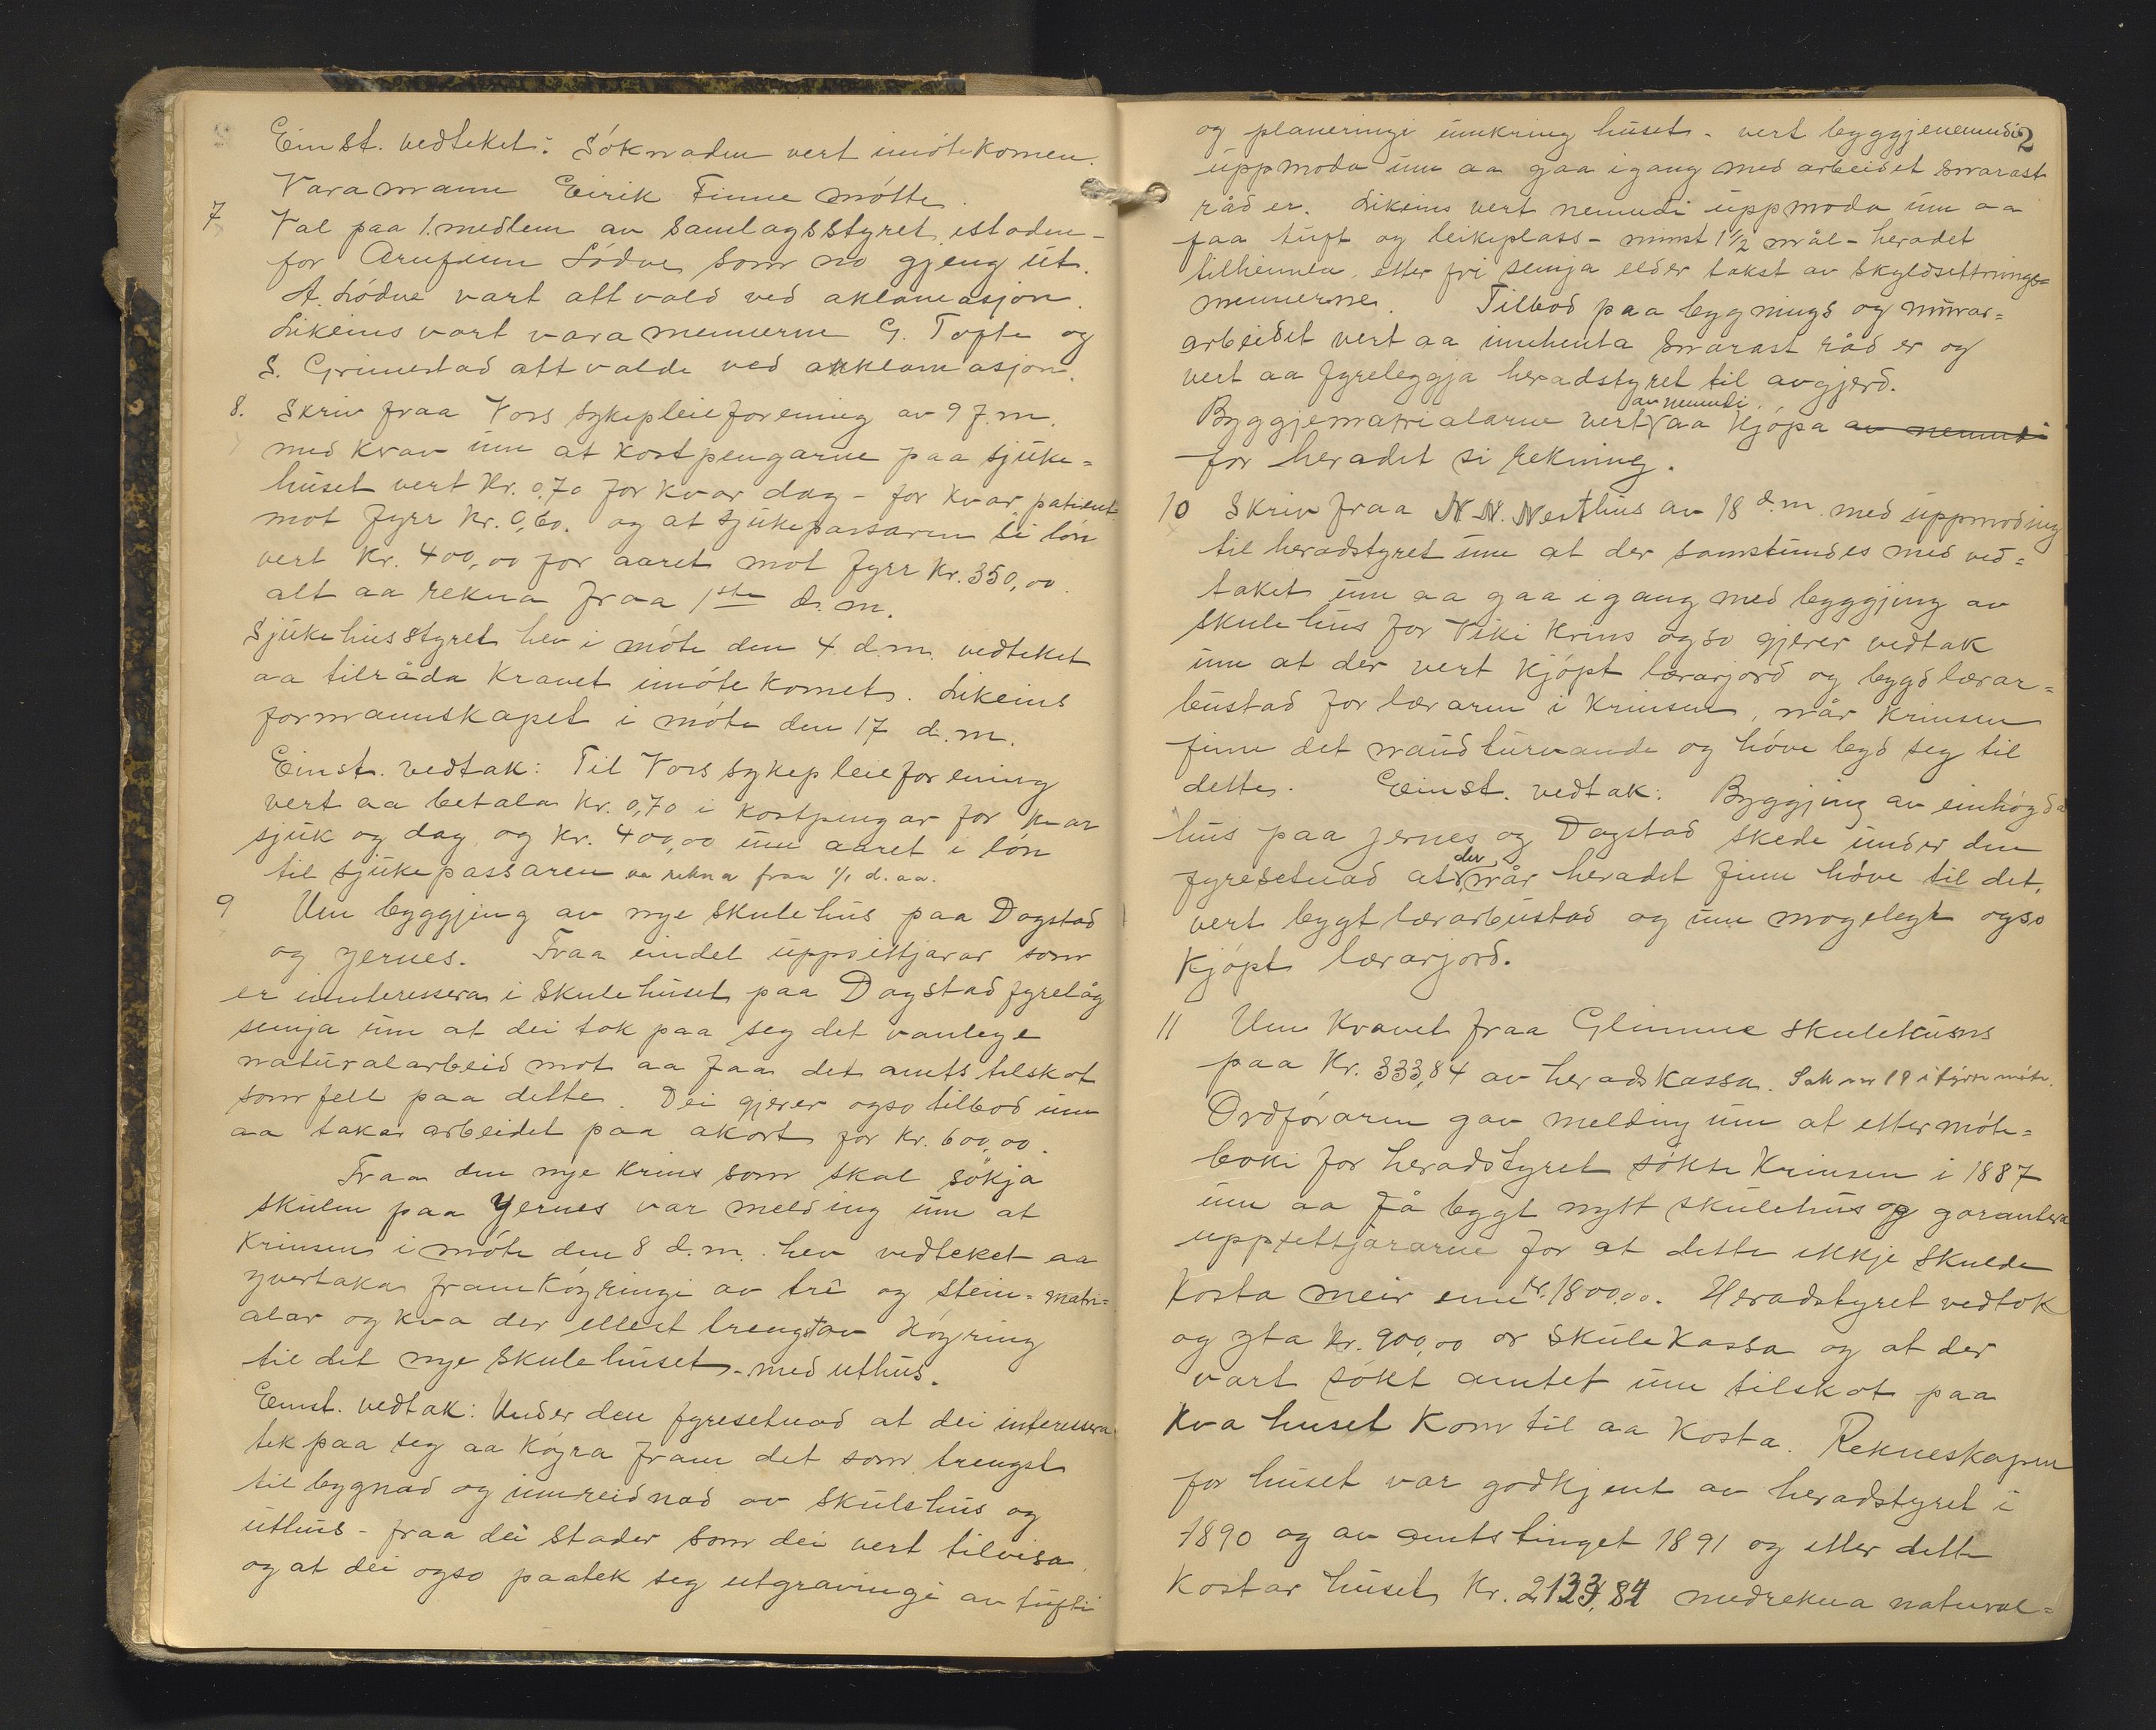 Einst. vedteket: Søknaden vert imøtekomen.
Varamann Eirik Finne møtte.
7 Val paa 1. medlem av Samlagsstyret istaden-
for Arnfinn Lødve som no gjeng út.
A. Lødve vart attvald ved aklamasjon.
Likeins vart varamennerne G. Tofte og
S. Grimestad attvalde ved aklamasjon.
8. Skriv fraa Vors sykepleieforening av 9 f.m.
med krav um at kostpengarne paa sjuke=
huset vert kr. 0,70 for kvar dag - for kvar patient
mot fyrr kr. 0,60. og at sjukepassaren si løn
vert kr. 400,00 for aaret mot fyrr kr. 350,00.
alt aa rekna fraa 1ste d.m.
Sjukehusstyret hev i møte den 4 d.m. vedteket
aa tilråda kravet imøtekomet. Likeins
formannskapet i møte den 17 d.m.
Einst. vedtak: Til Vors sykepleieforening
vert aa betala kr. 0,70 i kostpengar for kvar
sjuk og dag og kr. 400,00 um aaret i løn
til sjukepassaren aa rekna fraa 1/1 d.aa.
9 Um byggjing av nye skulehus paa Dagstad
og Gjernes. Fraa eindel uppsittjarar som
er interessera i skulehuset paa Dagstad fyrelåg
semja um at dei tok paa seg det vanlege
naturalarbeid mot aa faa det amtstilskot
som fell paa dette. Dei gjerer ogso tilbod um
aa taka arbeidet paa akort for kr. 600,00.
Fraa den nye krins som skal søkja
skulen paa Gjernes var melding um at
krinsen i møte den 8 d.m. hev vedteket aa
yvertaka framkøyringi av tre og stein= matri=
alar og kva der ellest trengst av køyring
til det nye skulehuset - med uthus.
Einst. vedtak: Under den fyresetnad at dei interessera
tek paa seg aa køyra fram det som trengst
til bygnad og innreidnad av skulehus og
uthus - fraa dei stader som dei vert tilvisa
og at dei ogso paatek seg utgravingi av tufti
2
og planeringi umkring huset - vert byggjenemndi
uppmoda um aa gaa igang med arbeidet snarast
råd er. Likeins vert nemndi uppmoda um aa
faa tuft og leikeplass - minst 1 1/2 mål - heradet
tilheimla etter fri semja elder takst av skyldsettnings=
mennerne. Tilbod paa bygnings og murar=
arbeidet vert aa innhenta snarast råd er og
vert aa fyreleggja heradstyret til avgjerd.
av nemndi
Byggjematrialarne vert aa kjøpa av nemndi
for heradet si rekning.
10 Skriv fraa N. N. Nesthus av 18 d.m. med uppmoding
til heradstyret um at der samstundes med ved=
taket um aa gaa igang med byggjing av
skulehus for Viki krins ogso gjerer vedtak
um at der vert kjøpt lærarjord og bygd lærar=
bustad for læraren i krinsen, når krinsen
finn det naudturvande og høve byd seg til
dette. Einst. vedtak: Byggjing av einhøgda
hus paa Gjernes og Dagstad skede under den
fyresetnad at der når heradet finn høve til det,
vert bygt lærarbustad og um mogelegt ogso
kjøpt lærarjord.
11 Um kravet fraa Glimme skulekrins
paa kr. 333,84 av heradskassa. Sak nr 19 i fyrre møte.
Ordføraren gav melding um at etter møte=
boki for heradstyret søkte krinsen i 1887
um aa få bygt nytt skulehus og garantera
uppsittjararne for at dette ikkje skulde
kosta meir enn kr. 1800,00. Heradstyret vedtok
og yta kr. 900,00 or skulekassa og at der
vart søkt amtet um tilskot paa
kva huset kom til aa kosta. Rekneskapen
for huset var godkjent av heradstyret i
1890 og av amtstinget 1891 og etter dette
kostar huset kr. 2133,84 medrekna natural=